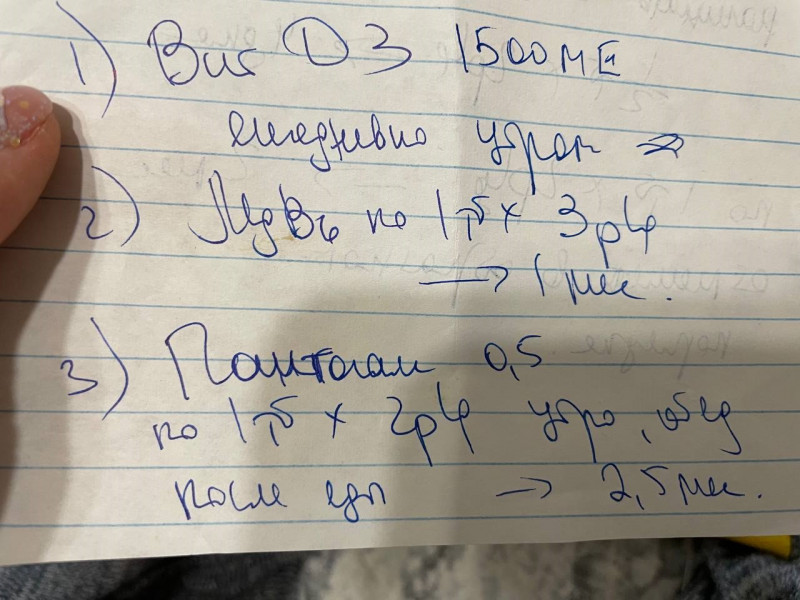 1) Вит D3 1500 МЕ
ежедневно утром →
2) МgB6 по 1 тб x 3 р/д
→ 1 мес.
3) Пантогам 0,5
по 1 тб x 2р/д утро, обед
после еды → 2,5 мес.